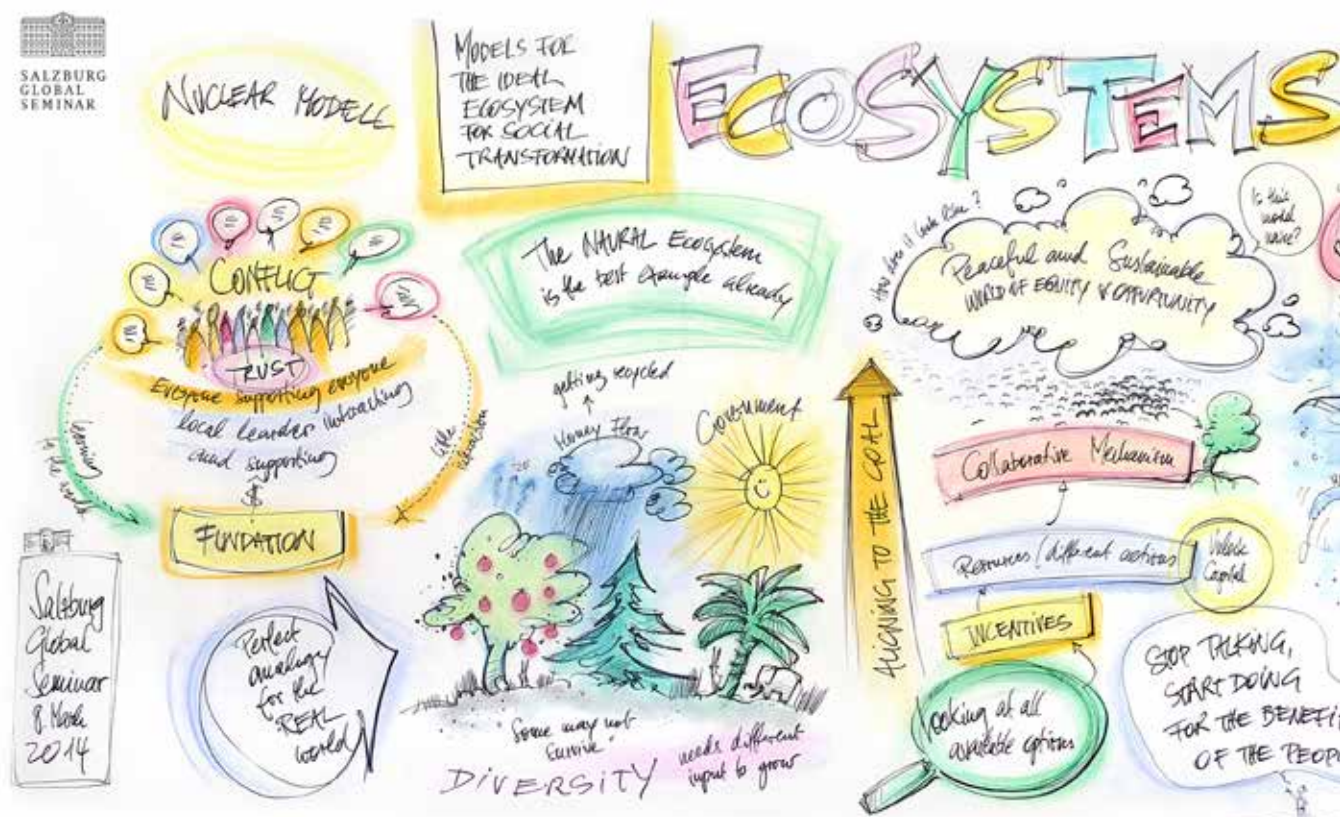 SALZBURG
GLOBAL
SEMINAR
NUCLEAR MODELL
MODELS FOR
THE IDEAL
ECOSYSTEM
FOR SOCIAL
TRANSFORMATION
ECOSYSTEMS
CONFLICT
TRUST
Everyone supporting everyone
local leader interacting
and supporting
learning
to the world
FUNDATION
Salzburg
Global
Seminar
8 March
2014
The NAURAL Ecosystem
is the best example already
getting recycled
Money Flow
Government
Perfect
analogy
for the
REAL
world
"Some may not
survive"
DIVERSITY
needs different
input to grow
How does it look like?
Peaceful and Sustainable
WORLD OF EQUITY & OPPURTUNITY
Is this
world
naive?
ALIGNING TO THE GOAL
Collaborative Mechanism
Resources / different actions
Unlock
Capital
INCENTIVES
looking at all
available options
STOP TALKING,
START DOING
FOR THE BENEFI
OF THE PEOP